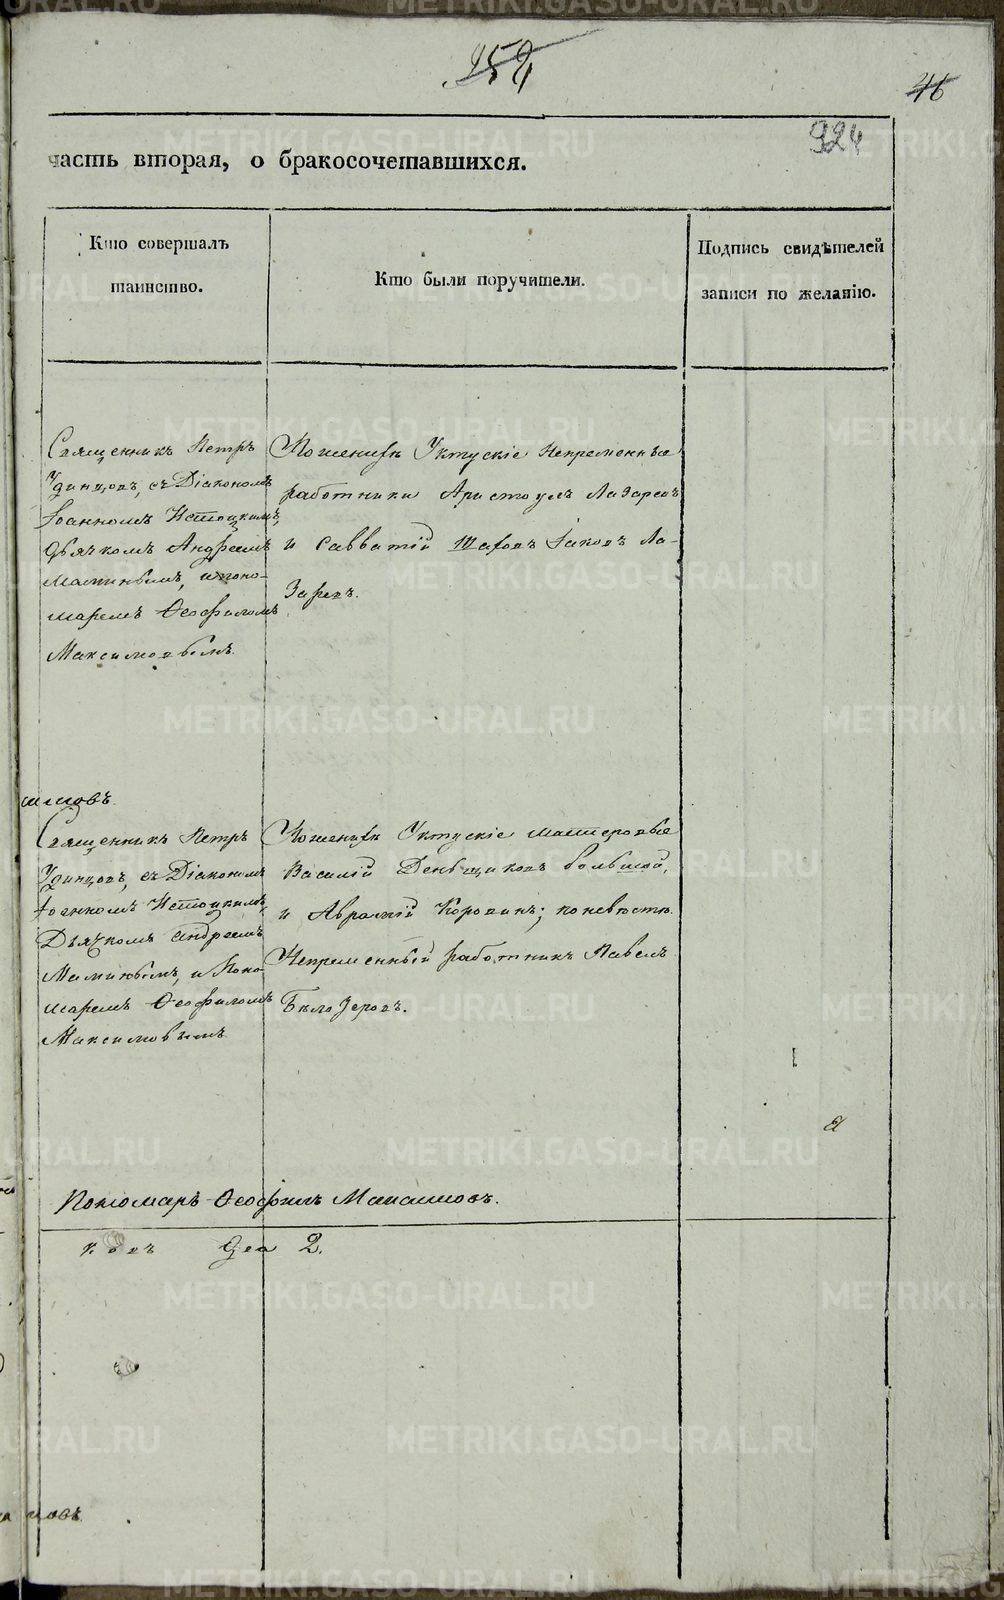 252
46
924
часть вторая, о бракосочетавшихся.
Кто совершалъ
таинство.
Кто были поручители.
Подпись свидѣтелей
записи по желанію.
Священникъ Петръ
Удинцовъ, съ Діакономъ
Іоанномъ Истоцкимъ,
дьячкомъ Андреемъ
Маминымъ, и поно-
маремъ Ѳеофиломъ
Максимовымъ.
Поженихѣ Уктускіе Непременные
работники Аристоулъ Лазаревъ
и Савватій Шаховъ Іаковъ Ла-
заревъ.
Священникъ Петръ
Удинцовъ, съ Діакономъ
Іоанномъ Истоцкимъ,
Дьячкомъ Андреемъ
Маминымъ, и Поно-
маремъ Ѳеофиломъ
Максимовымъ
Поженихѣ Уктускіе мастеровые
Василій Деньщиковъ большой,
и Аврамій Коровинъ; поневѣсте
Непременный работникъ Павелъ
Бѣлозеровъ.
Пономарь Ѳеофилъ Макси­мовъ.
ковъ два 2.
METRIKI.GASO-URAL.RU